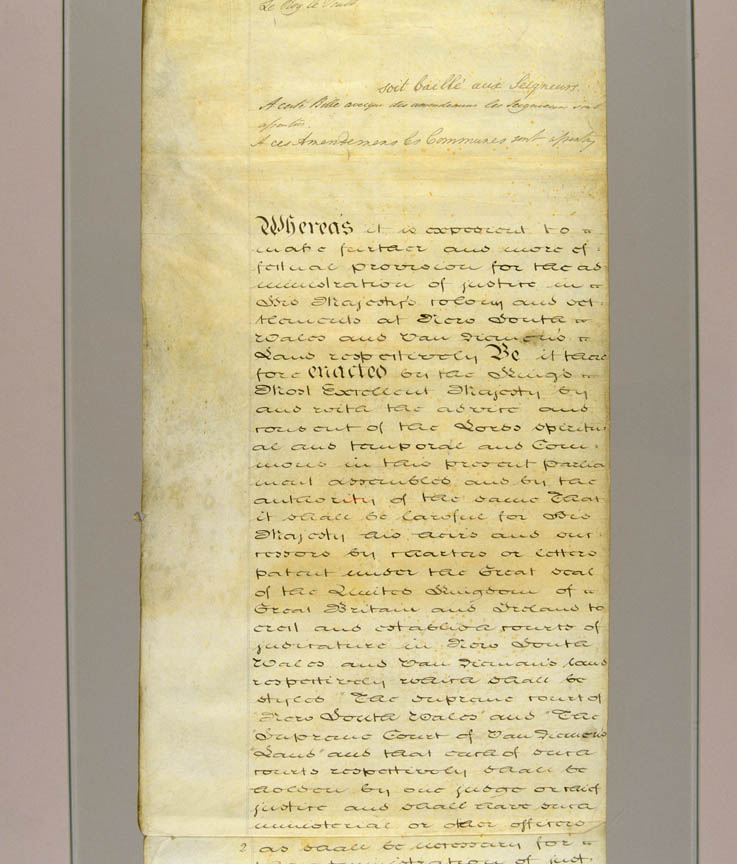 Le Roy le Veult
soit baillé aux Seigneurs
A ceste Bille avecque des amendemens les Seigneurs sont
assentus.
A ces Amendemens les Communes sont assentus
Whereas it is expedient to
make further and more ef-
fectual provision for the ad
ministration of justice in
His Majesty's colony and set-
tlements at New South
Wales and Van Diemen's
Land respectively Be it there
fore enacted by the King's
Most Excellent Majesty by
and with the advice and
consent of the Lords spiritu
al and temporal and Com-
mons in this present parlia
ment assembled and by the
authority of the same That
it shall be lawful for His
Majesty his heirs and suc
cessors by charters or letters
patent under the Great seal
of the United Kingdom of
Great Britain and Ireland to
erect and establish courts of
judicature in New South
Wales and Van Dieman's land
respectively which shall be
styled "The supreme court of
New South Wales" and "The
Supreme Court of Van Diemen's
Land" and that each of such
courts respectively shall be
holden by one judge or chief
justice and shall have such
ministerial or other officers
2 as shall be necessary for
the administration of just.